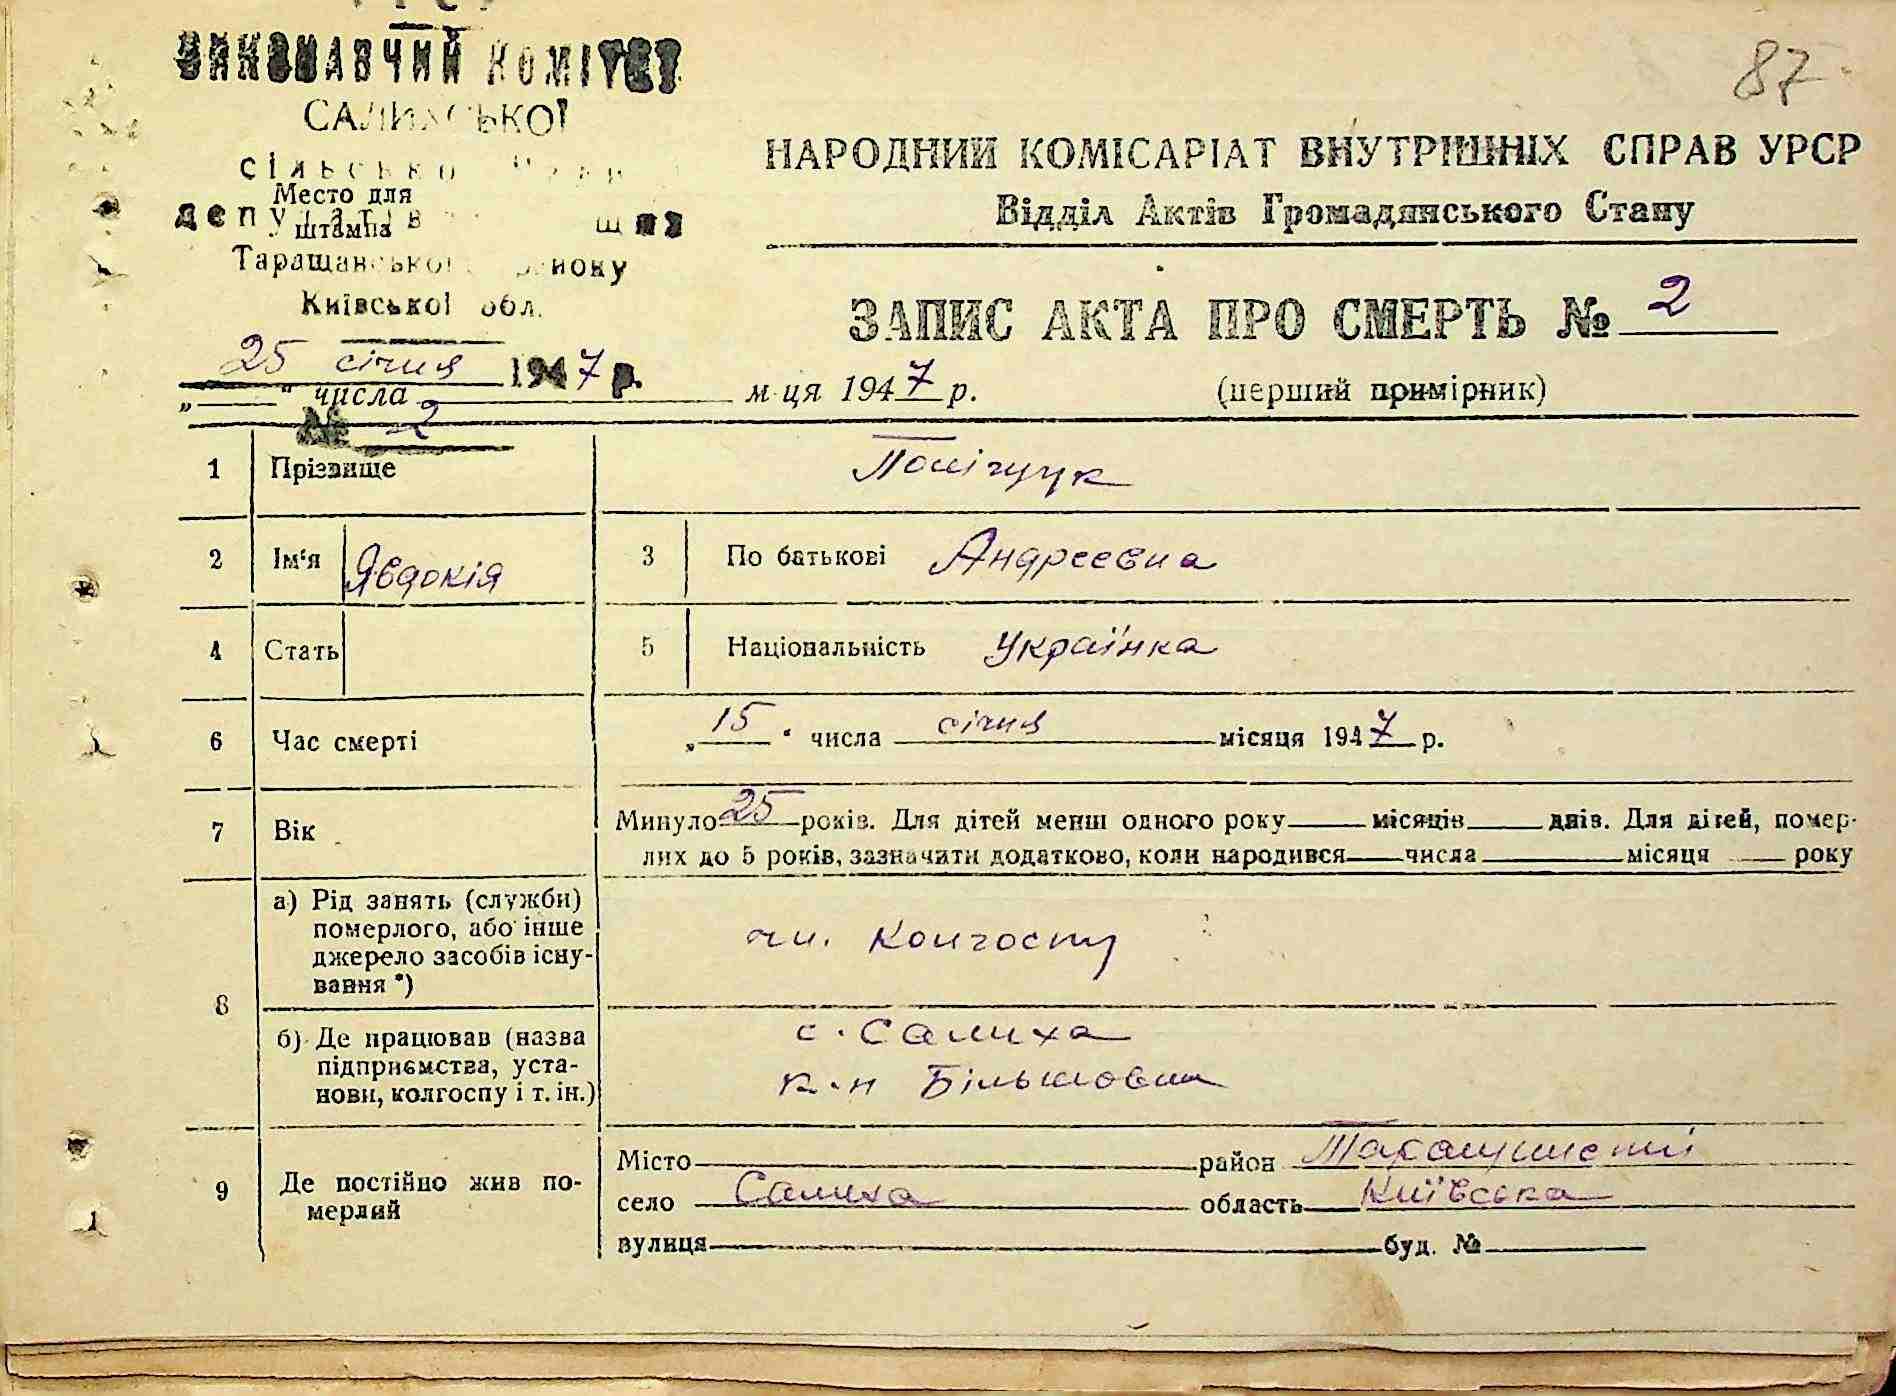 87
ВИКОНАВЧИЙ КОМІТЕТ
САЛИХСЬКОЇ
Место для
штампа
депутатів
Таращанської району
Київської обл.
25 січня 1947 р.
№ 2
НАРОДНИЙ КОМІСАРІАТ ВНУТРІШНІХ СПРАВ УРСР
Відділ Актів Громадянського Стану
ЗАПИС АКТА ПРО СМЕРТЬ № 2
„ “ числа м-ця 1947 р. (перший примірник)
1 Прізвище Поліщук
2 Ім'я Явдокія 3 По батькові Андреевна
4 Стать 5 Національність Українка
6 Час смерті „15“ числа січня місяця 1947 р.
7 Вік Минуло 25 років. Для дітей менш одного року місяців днів. Для дітей, помер-
лих до 5 років, зазначити додатково, коли народився числа місяця року
8 а) Рід занять (служби)
померлого, або інше
джерело засобів існу-
вання *) чл. Колгоспу
б) Де працював (назва
підприємства, уста-
нови, колгоспу і т. ін.) с. Салиха
к-п Більшовик
9 Де постійно жив по-
мерлий
Місто район Таращанський
село Салиха область Київська
вулиця буд. №